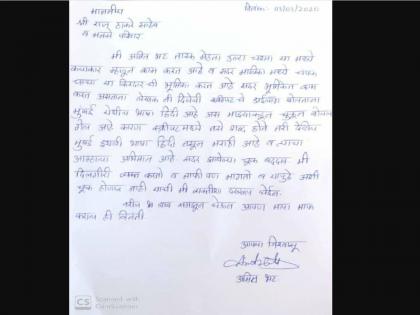 माननीय
दिनांक: 03/03/2020
श्री राज ठाकरे साहेब
व मनसे परिवार
मी अमित भट तारक मेहता उल्टा चश्मा या मध्ये
कलाकार म्हणून काम करत आहे व सदर मालिका मध्ये चंपक
चाचा या किरदार ची भूमिका करत आहे सदर भूमिकेत काम
करत असताना लेखक नी दिलेली स्क्रिप्ट चे डायलॉग बोलताना
मुंबई येथील भाषा हिंदी आहे असं माझ्याकडून चुकून बोलले
गेलं आहे कारण स्क्रीप्ट मध्ये तसे शब्द होते तरी देखील
मुंबई इथली भाषा हिंदी नसून मराठी आहे व त्याचा
आम्हाला अभिमान आहे सदर झालेल्या चूक बद्दल मी
दिलगिरी व्यक्त करतो व माफी पण मागतो व यापुढे अशी
चूक होणार नाही याची मी दक्षता घेईन
वरील बाब समजून घेऊन आपण मला माफ
कराल ही विनंती
आपला विश्वासू
अमित भट
CS
Scanned with
CamScanner